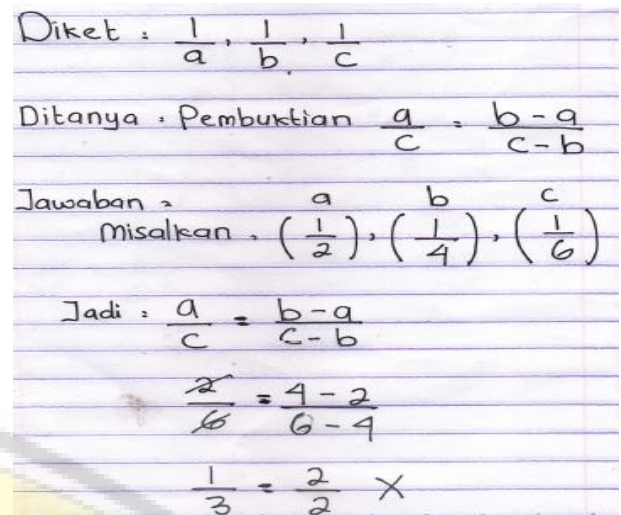 Diket : 1/a, 1/b, 1/c
Ditanya : Pembuktian a/c = b-a/c-b
Jawaban :
a b c
Misalkan : (1/2), (1/4), (1/6)
Jadi : a/c = b-a/c-b
2/6 = 4-2/6-4
1/3 = 2/2 X